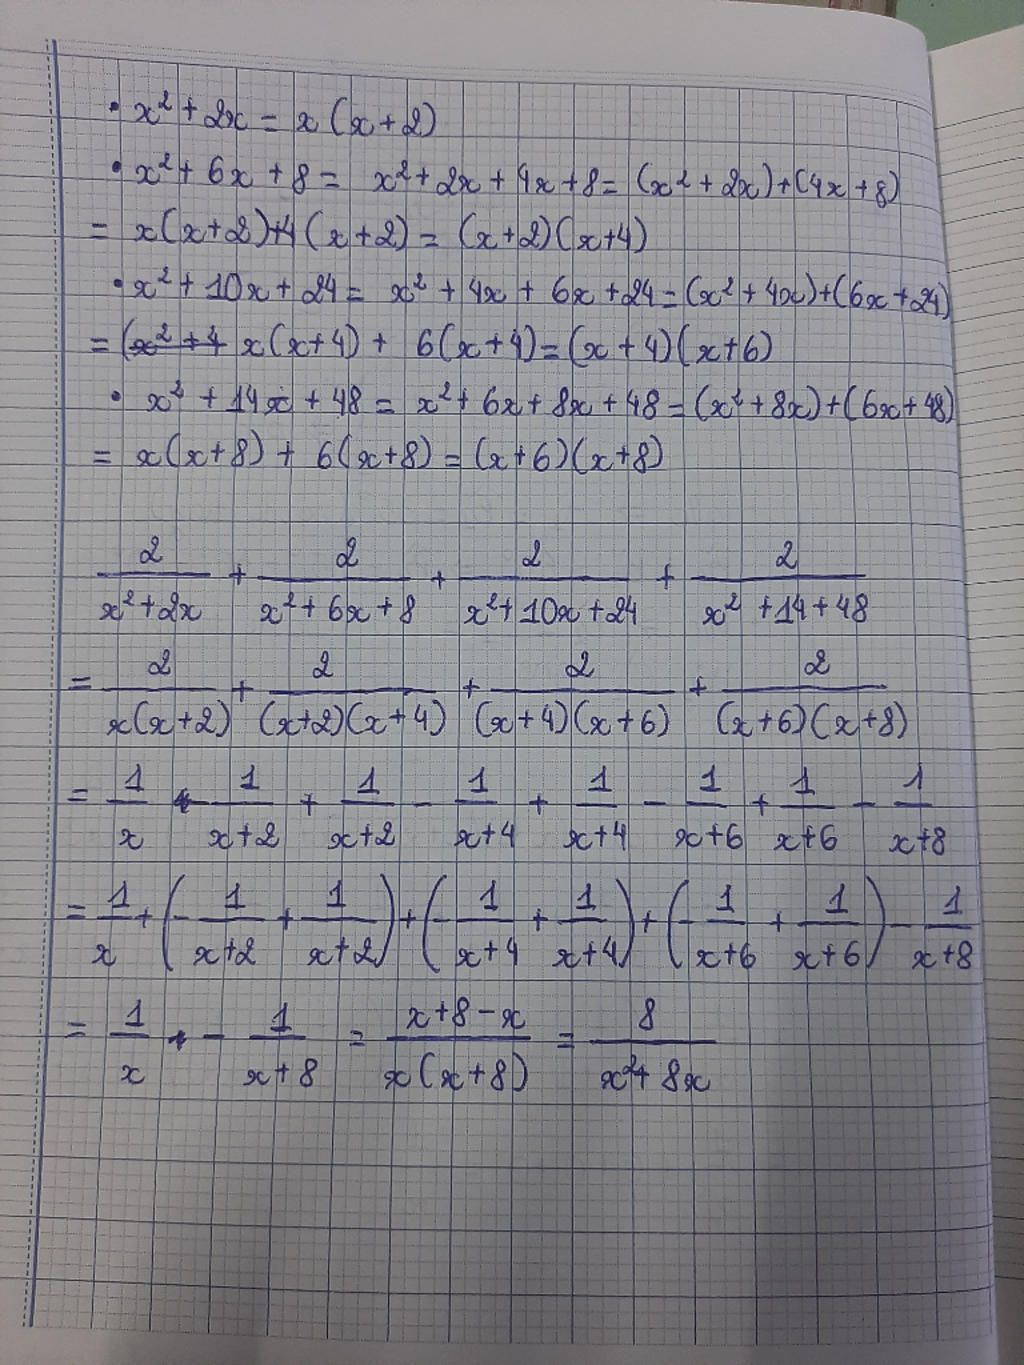 • x² + 2x = x (x+2)
• x² + 6x + 8 = x² + 2x + 4x + 8 = (x² + 2x) + (4x + 8)
= x(x+2)+4(x+2) = (x+2)(x+4)
• x² + 10x + 24 = x² + 4x + 6x + 24 = (x² + 4x) + (6x + 24)
= (x² + 4 x(x+4) + 6(x+4) = (x+4)(x+6)
• x² + 14x + 48 = x² + 6x + 8x + 48 = (x² + 8x) + (6x + 48)
= x(x+8) + 6(x+8) = (x+6)(x+8)
2/(x² + 2x) + 2/(x² + 6x + 8) + 2/(x² + 10x + 24) + 2/(x² + 14 + 48)
= 2/(x(x+2)) + 2/((x+2)(x+4)) + 2/((x+4)(x+6)) + 2/((x+6)(x+8))
= 1/x - 1/(x+2) + 1/(x+2) - 1/(x+4) + 1/(x+4) - 1/(x+6) + 1/(x+6) - 1/(x+8)
= 1/x + (- 1/(x+2) + 1/(x+2)) + (- 1/(x+4) + 1/(x+4)) + (- 1/(x+6) + 1/(x+6)) - 1/(x+8)
= 1/x - 1/(x+8) = (x+8-x)/(x(x+8)) = 8/(x² + 8x)